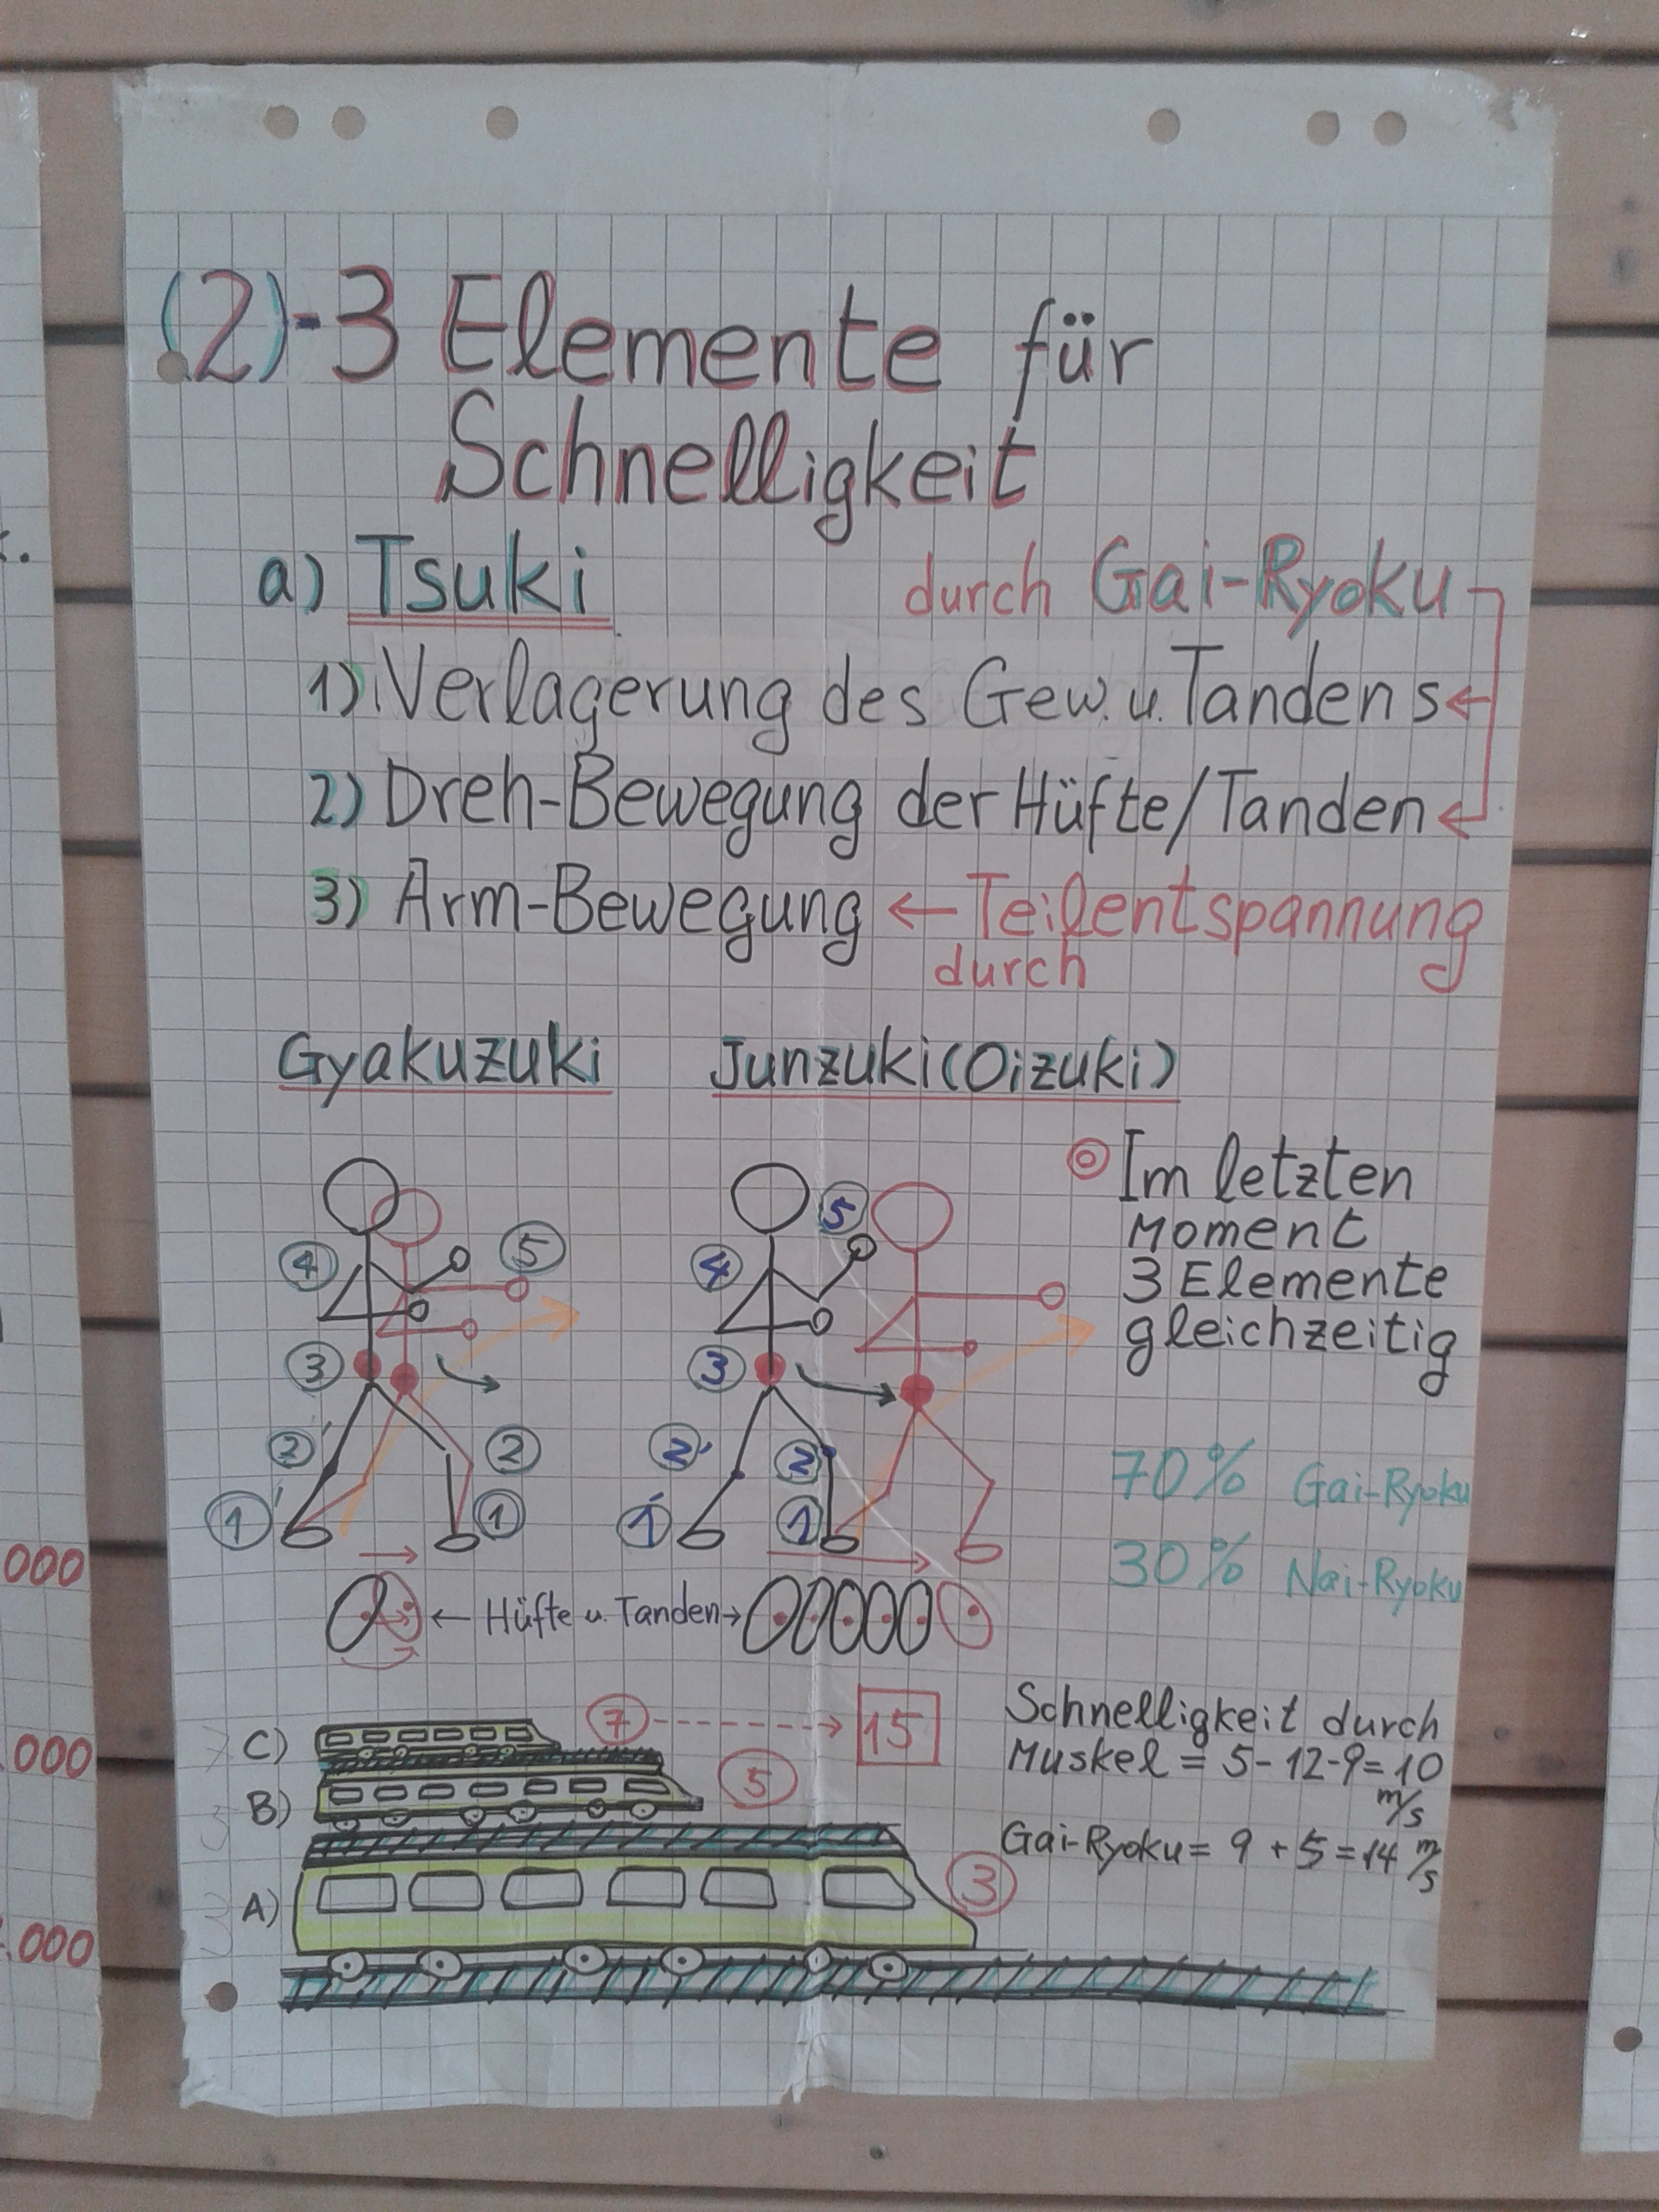 (2)-3 Elemente für
Schnelligkeit
a) Tsuki durch Gai-Ryoku
1) Verlagerung des Gew. u. Tandens
2) Dreh-Bewegung der Hüfte/Tanden
3) Arm-Bewegung ← Teilentspannung
durch
Gyakuzuki Junzuki(Oizuki)
◎ Im letzten
Moment
3 Elemente
gleichzeitig
4 5
3
2' 2
1' 1
5
4
3
2' 2
1' 1
70% Gai-Ryoku
30% Nai-Ryoku
← Hüfte u. Tanden →
C) 7 → 15
B) 5
A) 3
Schnelligkeit durch
Muskel = 5-12-9=10
m/s
Gai-Ryoku = 9 + 5 = 14 m/s
000
.000
.000